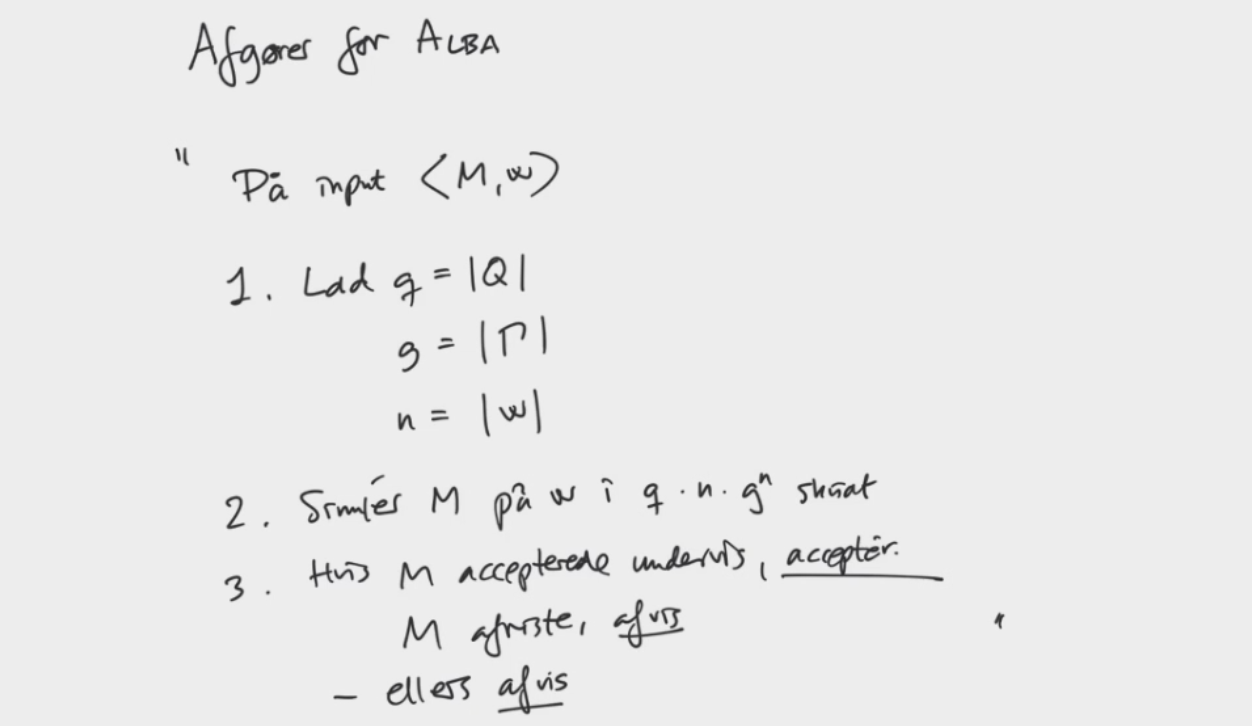 Afgører for ALBA
"
På input ⟨M, w⟩
1. Lad q = |Q|
g = |Γ|
n = |w|
2. Simulér M på w i q · n · gⁿ skridt
3. Hvis M accepterede undervejs, acceptér.
M afviste, afvis "
– ellers afvis